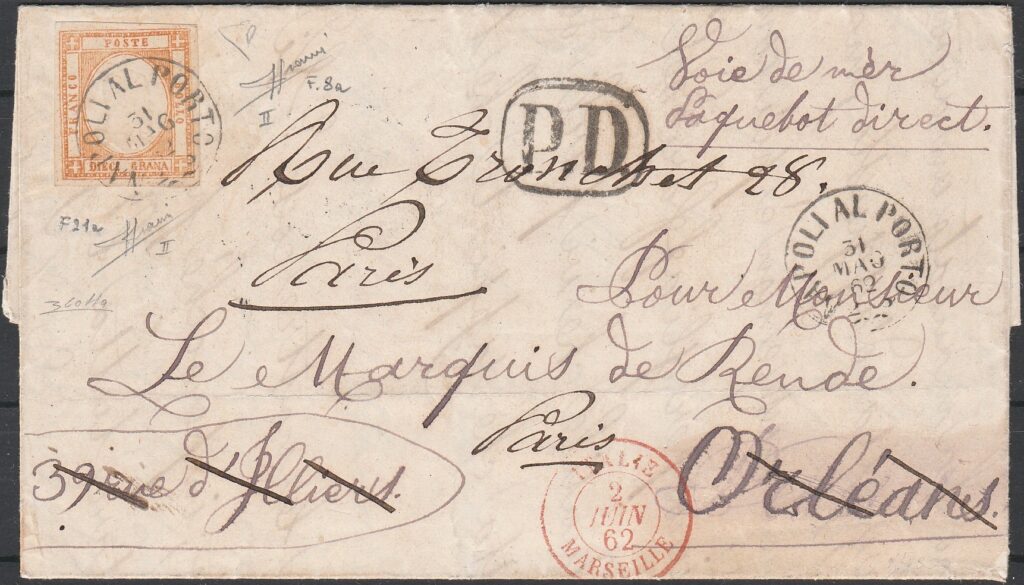 POSTE
FRANCO
DIECI GRANA
NAPOLI AL PORTO
31
MAG
F.8a
II
F21a
II
P.D
Voie de mèr
Paquebot direct.
Rue Tronchet 28.
Paris
NAPOLI AL PORTO
31
MAG
62
Pour Monsieur
Le Marquis de Rende.
Paris
39 rue d'Illiers.
Orléans.
ITALIE
2
JUIN
62
MARSEILLE